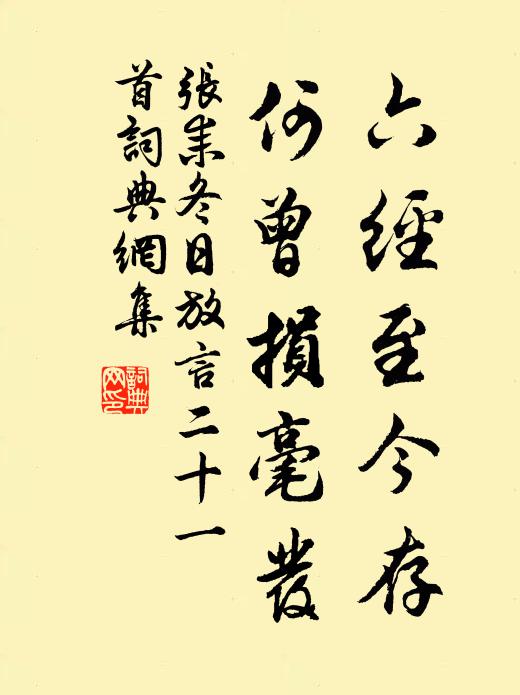 六經至今存
何曾損毫發
張耒冬日放言二十一
首詞典網集
詞典
網印